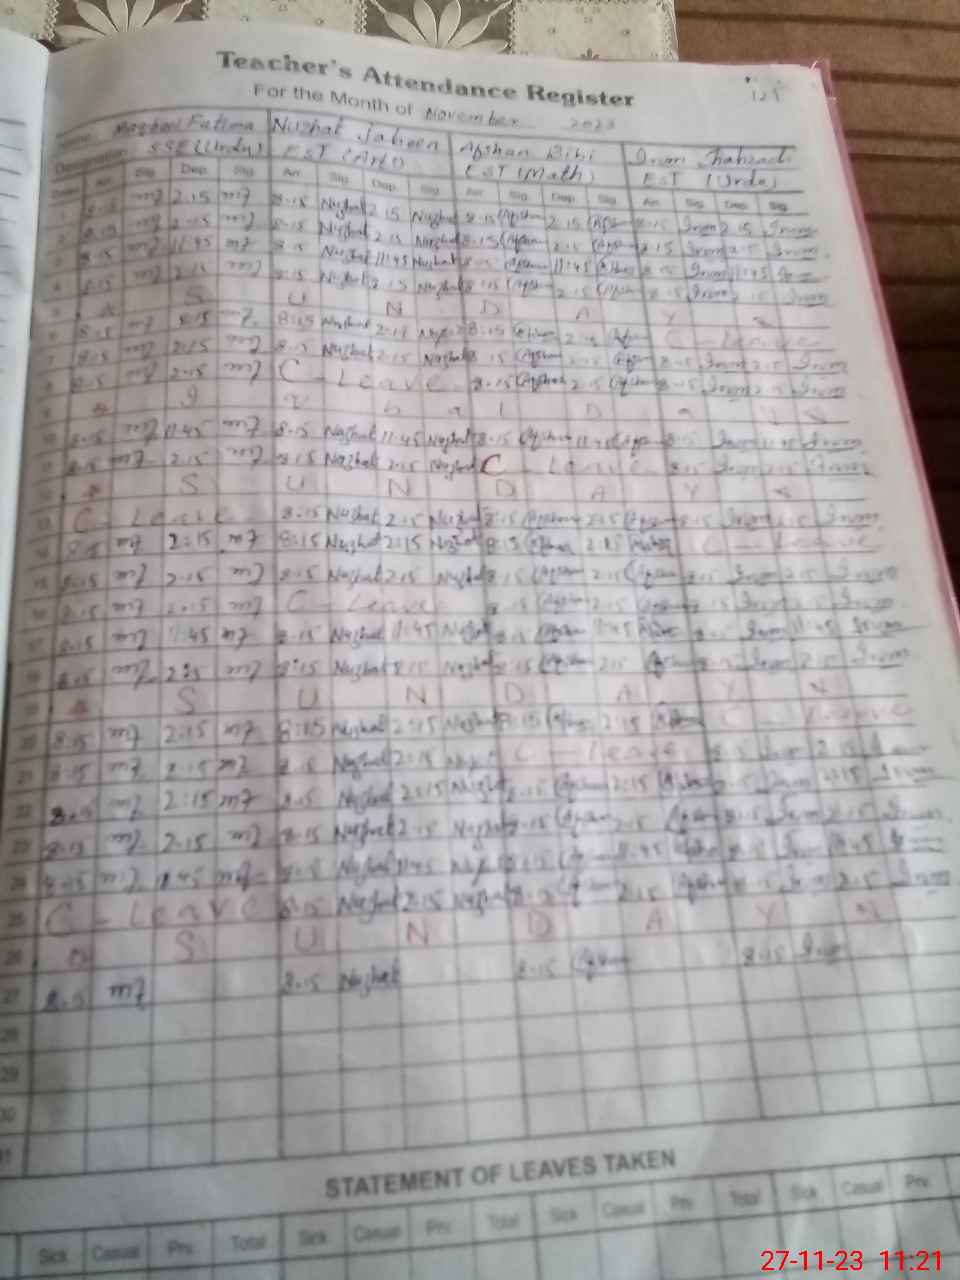 Teacher's Attendance Register
For the Month of November 2023
125
Name Fatima Nuzhat Jabeen Afshan Bibi Irum Shahzadi
Designation SSE (Urdu) EST (Arts) EST (Math) EST (Urdu)
Dates Arr. Sig. Dep. Sig. Arr. Sig. Dep. Sig. Arr. Sig. Dep. Sig. Arr. Sig. Dep. Sig.
1 8.15 2.15 8.15 Nuzhat 2.15 Nuzhat 8.15 Afshan 2.15 Afshan 8.15 Irum 2.15 Irum
2 8.15 2.15 8.15 Nuzhat 2.15 Nuzhat 8.15 Afshan 2.15 Afshan 8.15 Irum 2.15 Irum
3 8.15 11.45 8.15 Nuzhat 11:45 Nuzhat 8.15 Afshan 11:45 Afshan 8.15 Irum 11:45 Irum
4 8.15 2.15 8.15 Nuzhat 2.15 Nuzhat 8.15 Afshan 2.15 Afshan 8.15 Irum 2.15 Irum
5 S U N D A Y
6 8.15 8:15 Nuzhat 8:15 Afshan 2.15 Afshan C - Leave
7 8.15 2:15 8.15 Nuzhat 2.15 Nuzhat 8.15 Afshan 2.15 Afshan 8.15 Irum 2.15 Irum
8 8.15 2.15 C - Leave 8.15 Afshan 2.15 Afshan 8.15 Irum 2.15 Irum
9 I q b a l D a y
10 8.15 11:45 8.15 Nuzhat 11:45 Nuzhat 8.15 Afshan 11:45 Afshan 8.15 Irum 11:45 Irum
11 8.15 2.15 8.15 Nuzhat 2.15 Nuzhat C - Leave 8.15 Irum 2.15 Irum
12 S U N D A Y
13 C - Leave 8.15 Nuzhat 2.15 Nuzhat 8.15 Afshan 2.15 Afshan 8.15 Irum 2.15 Irum
14 8.15 2:15 8:15 Nuzhat 2:15 Nuzhat 8:15 Afshan 2:15 Afshan C - Leave
15 8.15 2.15 8.15 Nuzhat 2.15 Nuzhat 8.15 Afshan 2.15 Afshan 8.15 Irum 2.15 Irum
16 8.15 2.15 C - Leave 8.15 Afshan 2.15 Afshan 8.15 Irum 2.15 Irum
17 8.15 11:45 8.15 Nuzhat 11:45 Nuzhat 8.15 Afshan 11:45 Afshan 8.15 Irum 11:45 Irum
18 8.15 8:15 Nuzhat 8.15 Nuzhat 8.15 Afshan 2.15 Afshan 8.15 Irum 2.15 Irum
19 S U N D A Y
20 8.15 2:15 8:15 Nuzhat 2:15 Nuzhat 8:15 Afshan 2:15 Afshan C - Leave
21 8.15 8.15 Nuzhat 2:15 C - Leave 8.15 Irum 2.15 Irum
22 8.15 2:15 8.15 Nuzhat 2:15 Nuzhat 8.15 Afshan 2:15 Afshan 8.15 Irum 2:15 Irum
23 8.15 2.15 8.15 Nuzhat 2.15 Nuzhat 8.15 Afshan 2.15 Afshan 8.15 Irum 2.15 Irum
24 8.15 Nuzhat 11:45 8.15 Afshan 11:45 Afshan 8.15 Irum 11:45
25 C - Leave 8.15 Nuzhat 2.15 Nuzhat 8.15 Afshan 2.15 Afshan 8.15 Irum 2.15 Irum
26 S U N D A Y
27 8.15 8.15 Nuzhat 8.15 Afshan 8.15 Irum
28
29
30
31
STATEMENT OF LEAVES TAKEN
Sick Casual Prv. Total Sick Casual Prv. Total Sick Casual Prv. Total Sick Casual Prv.
27-11-23 11:21